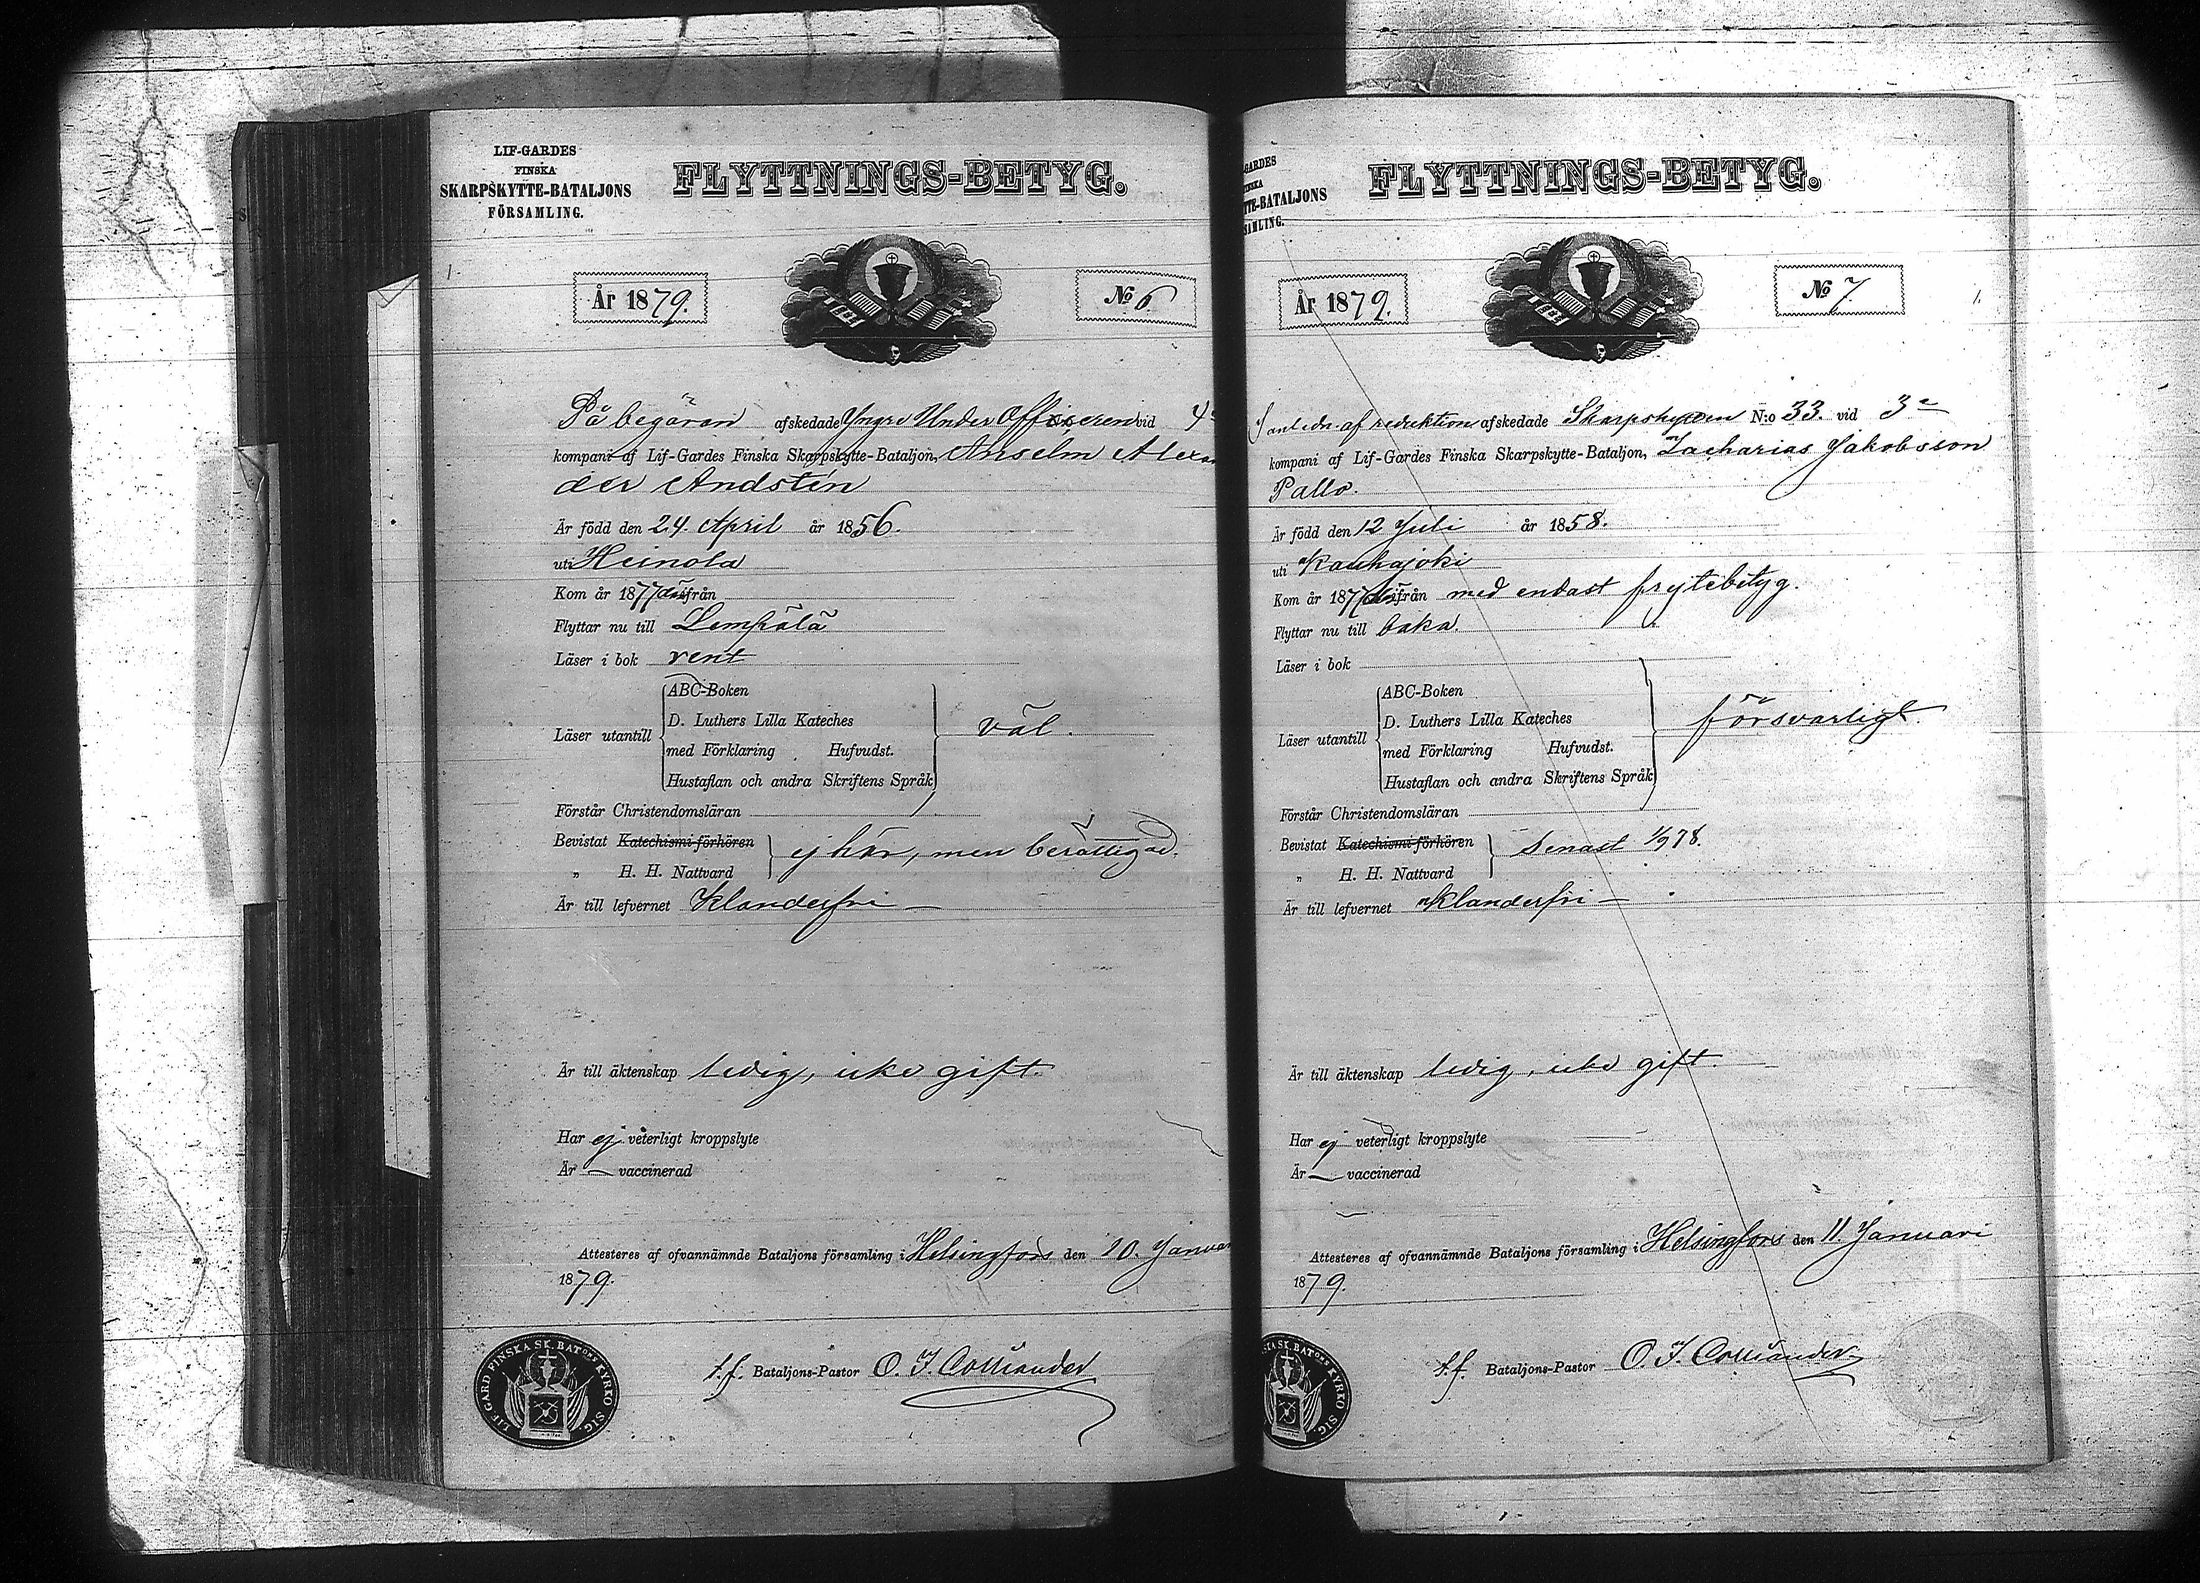 LIF-GARDES
FINSKA
SKARPSKYTTE-BATALJONS
FÖRSAMLING.
FLYTTNINGS-BETYG.
År 1879.
№ 6.
På begäran afskedade Yngre Under Officeren vid 4
kompani af Lif-Gardes Finska Skarpskytte-Bataljon, Anselm Alexan
der Andstén
Är född den 24. April år 1856.
uti Heinola
Kom år 1877 därifrån
Flyttar nu till Lempälä
Läser i bok rent
Läser utantill
ABC-Boken
D. Luthers Lilla Kateches
med Förklaring Hufvudst.
Hustaflan och andra Skriftens Språk
väl.
Förstår Christendomsläran
Bevistat Katechismi-förhören
„ H. H. Nattvard
ej här, men berättigad.
Är till lefvernet Klanderfri
Är till äktenskap ledig, icke gift.
Har ej veterligt kroppslyte
Är vaccinerad
Attesteres af ofvannämnde Bataljons församling i Helsingfors den 10. Januar
1879.
t.f. Bataljons-Pastor O. I. Colliander
LIF GARD FINSKA SK. BATONS KYRKO SIG.
GARDES
FINSKA
TTE-BATALJONS
SAMLING.
FLYTTNINGS-BETYG.
År 1879.
№ 7.
anledn. af reduktion afskedade Skarpskytten N:o 33. vid 3e
kompani af Lif-Gardes Finska Skarpskytte-Bataljon, Zacharias Jakobsson
Pallo.
Är född den 12 Juli år 1858.
uti Kauhajoki
Kom år 187 därifrån med endast frejdebetyg.
Flyttar nu till baka.
Läser i bok
Läser utantill
ABC-Boken
D. Luthers Lilla Kateches
med Förklaring Hufvudst.
Hustaflan och andra Skriftens Språk
försvarligt.
Förstår Christendomsläran
Bevistat Katechismi-förhören
„ H. H. Nattvard
Senast 1/9 78.
Är till lefvernet Klanderfri
Är till äktenskap ledig, icke gift.
Har ej veterligt kroppslyte
Är vaccinerad
Attesteres af ofvannämnde Bataljons församling i Helsingfors den 11. Januari
1879.
t.f. Bataljons-Pastor O. I. Colliander
SKA SK. BATONS KYRKO SIG.